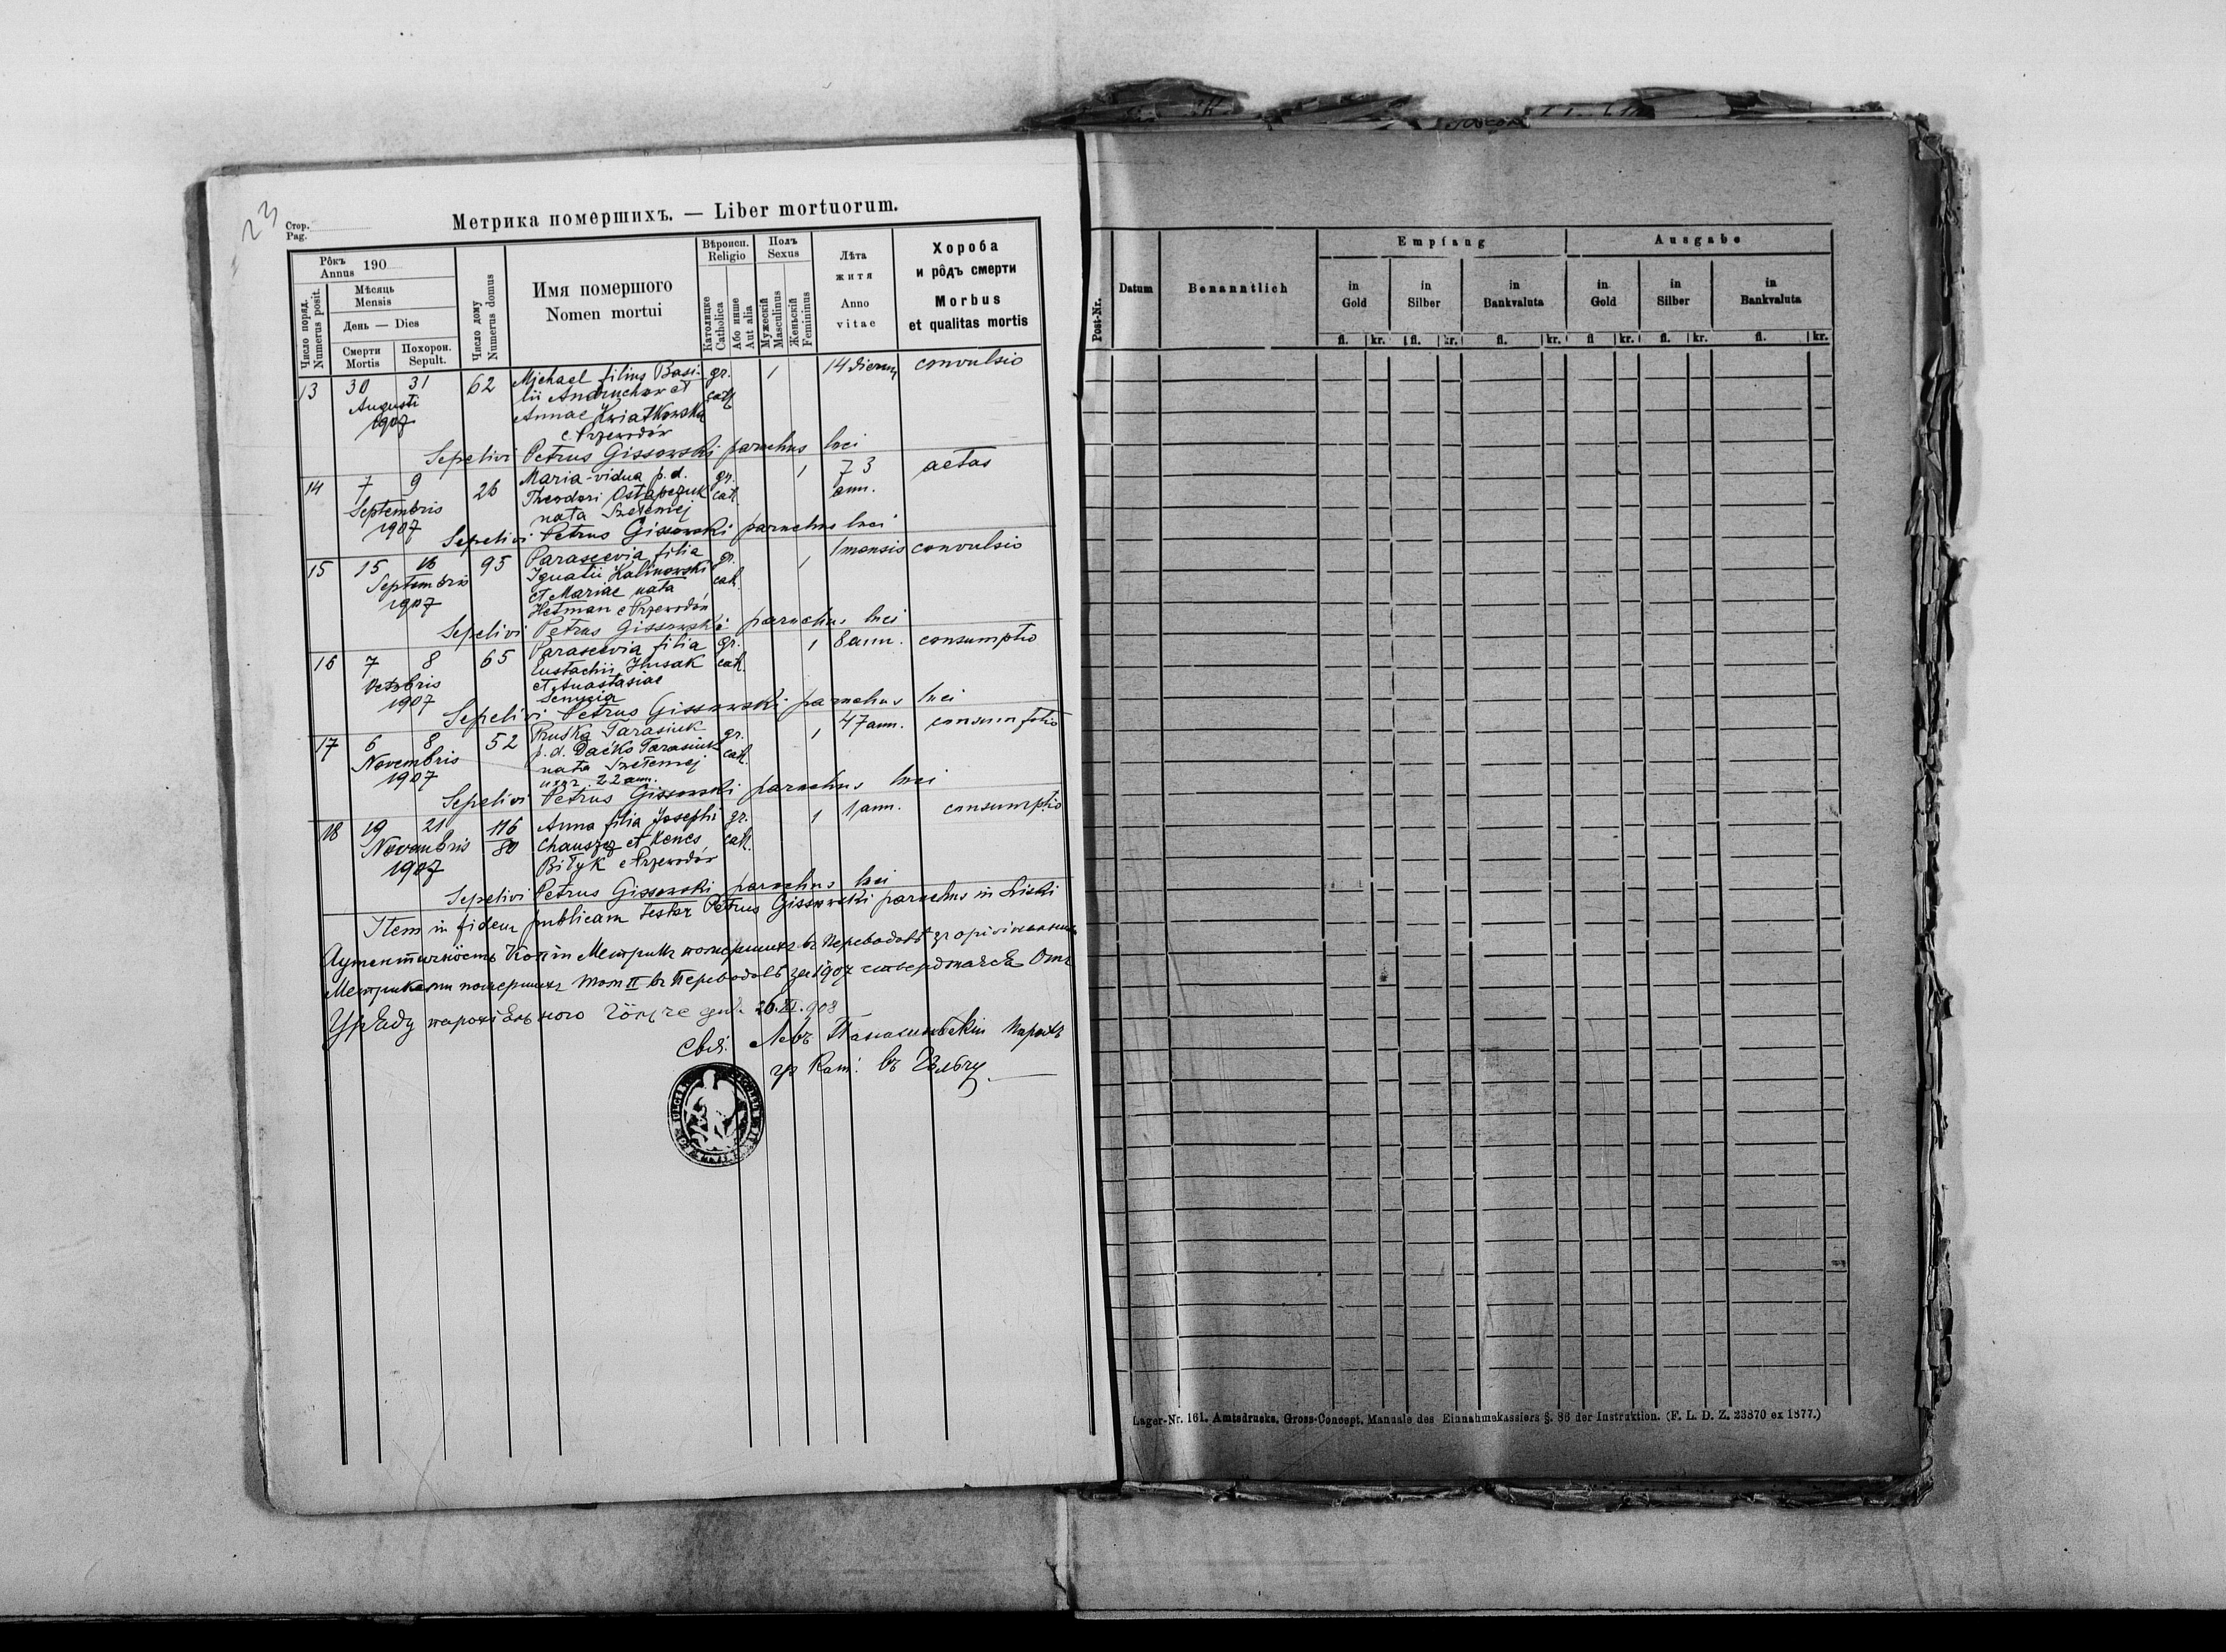 23
Стор.
Pag.
Метрика помершихъ. — Liber mortuorum.
Рôкъ
Annus 190
Число поряд.
Numerus posit.
Мѣсяць
Mensis
День — Dies
Смерти
Mortis
Похорон.
Sepult.
Число дому
Numerus domus
Имя помершого
Nomen mortui
Вѣроисп.
Religio
Католицке
Catholica
Або инше
Aut alia
Полъ
Sexus
Мужескій
Masculinus
Женьскій
Femininus
Лѣта
житя
Anno
vitae
Хороба
и рôдъ смерти
Morbus
et qualitas mortis
13 30 31 62 Michael filius Basi- gr. 1 14 dierum convulsio
Augusti lii Andruchow et cath.
1907 Annae Kwiatkowska
e Przewodów
Sepelivi Petrus Gissowski parochus loci
14 7 9 26 Maria vidua p.d. gr. 1 73 aetas
Septembris Theodori Ostapczuk cat. ann.
1907 nata Szełemej
Sepelivi Petrus Gissowski parochus loci
15 15 16 95 Parascevia filia gr. 1 1 mensis convulsio
Septembris Ignatii Kalinowski cat.
1907 et Mariae nata
Hetman e Przewodów
Sepelivi Petrus Gissowski parochus loci
16 7 8 65 Parascevia filia gr. 1 8 ann. consumptio
Octobris Eustachii Husak cat.
1907 et Anastasiae
Sepelivi Petrus Gissowski parochus loci
17 6 8 52 Ruska Tarasiuk gr. 1 47 ann. consumptio
Novembris p.d. Daćko Tarasiuk cat.
1907 nata Szełemej
uxor 22 ann.
Sepelivi Petrus Gissowski parochus loci
18 19 21 116 Anna filia Josephi gr. 1 1 ann. consumptio
Novembris 80 et cat.
1907 Biłyk e Przewodów
Sepelivi Petrus Gissowski parochus loci
Item in fidem publicam testor Petrus Gissowski parochus in Liski
Копіи Метрикъ помершихъ въ Переводовѣ зъ
Метриками помершихъ том II въ Переводовѣ за 1907 Отъ
Уряду 26.XI.908
Левъ Парохъ
гр Кат: въ
Post-Nr.
Datum
Benanntlich
Empfang
Ausgabe
in
Gold
in
Silber
in
Bankvaluta
in
Gold
in
Silber
in
Bankvaluta
fl. kr. fl. kr. fl. kr. fl kr. fl. kr. fl. kr.
Lager-Nr. 161. Amtsdrucks. Gross-Concept. Manuale des Einnahmekassiers §. 86 der Instruktion. (F. L. D. Z. 23870 ex 1877.)